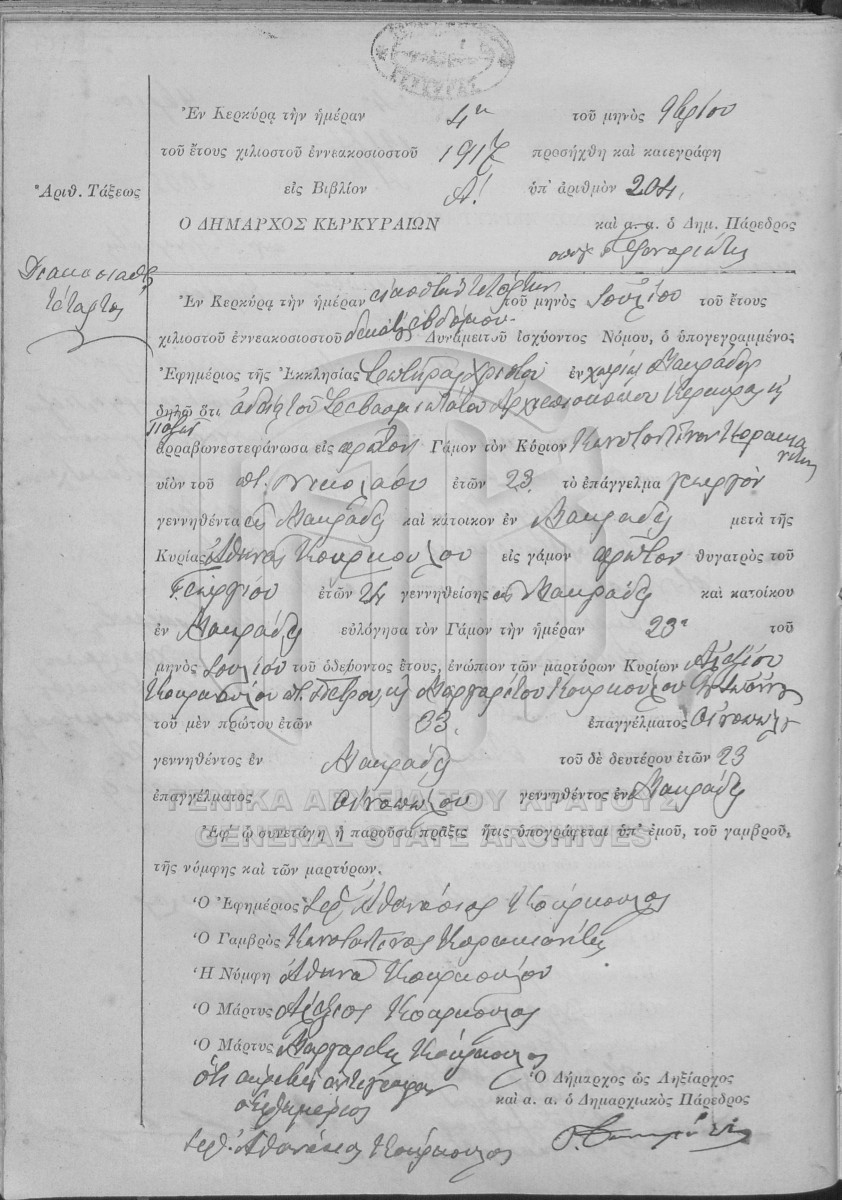 ΚΕΡΚΥΡΑΣ
Ἐν Κερκύρᾳ τὴν ἡμέραν 4ην τοῦ μηνὸς 9βρίου
τοῦ ἔτους χιλιοστοῦ ἐννεακοσιοστοῦ 1917 προσήχθη καὶ κατεγράφη
Ἀριθ. Τάξεως
εἰς Βιβλίον Α! ὑπ' ἀριθμὸν 204.
Ο ΔΗΜΑΡΧΟΣ ΚΕΡΚΥΡΑΙΩΝ καὶ α. α. ὁ Δημ. Πάρεδρος
Διακοσιοστὸς
τέταρτος
Ἐν Κερκύρᾳ τὴν ἡμέραν εἰκοστὴν τετάρτην τοῦ μηνὸς Ἰουλίου τοῦ ἔτους
χιλιοστοῦ ἐννεακοσιοστοῦ δεκάτου ἑβδόμου Δυνάμει τοῦ ἰσχύοντος Νόμου, ὁ ὑπογεγραμμένος
Ἐφημέριος τῆς Ἐκκλησίας Σωτῆρος Χριστοῦ ἐν χωρίῳ Μακράδες
δηλῶ ὅτι ἀδείᾳ τοῦ Σεβασμιωτάτου Ἀρχιεπισκόπου Κερκύρας
ἀρραβωνεστεφάνωσα εἰς πρῶτον Γάμον τὸν Κύριον Κωνσταντῖνον Κορακιανίτην
υἱὸν τοῦ π. Νικολάου ἐτῶν 23 τὸ ἐπάγγελμα γεωργὸν
γεννηθέντα εἰς Μακράδες καὶ κάτοικον ἐν Μακράδες μετὰ τῆς
Κυρίας Ἀθηνᾶς Κουρκούλου εἰς γάμον πρῶτον θυγατρὸς τοῦ
Γεωργίου ἐτῶν 24 γεννηθείσης εἰς Μακράδες καὶ κατοίκου
ἐν Μακράδες εὐλόγησα τὸν Γάμον τὴν ἡμέραν 23η τοῦ
μηνὸς Ἰουλίου τοῦ ὁδεύοντος ἔτους, ἐνώπιον τῶν μαρτύρων Κυρίων Ἀλεξίου
Κουρκούλου π. Πέτρου κ Μαργαρίτου Κουρκούλου
τοῦ μὲν πρώτου ἐτῶν 33. ἐπαγγέλματος Οἰνοπώλου
γεννηθέντος ἐν Μακράδες τοῦ δὲ δευτέρου ἐτῶν 23
ἐπαγγέλματος Οἰνοπώλου γεννηθέντος ἐν Μακράδες
ΓΕΝΙΚΑ ΑΡΧΕΙΑ ΤΟΥ ΚΡΑΤΟΥΣ
GENERAL STATE ARCHIVES
Ἐφ' ᾧ συνετάγη ἡ παροῦσα πρᾶξις ἥτις ὑπογράφεται ὑπ' ἐμοῦ, τοῦ γαμβροῦ,
τῆς νύμφης καὶ τῶν μαρτύρων.
Ὁ Ἐφημέριος Ἱερ. Ἀθανάσιος Κούρκουλος
Ὁ Γαμβρὸς Κωνσταντῖνος Κορακιανίτης
Ἡ Νύμφη Ἀθηνᾶ Κουρκούλου
Ὁ Μάρτυς Ἀλέξιος Κούρκουλος
Ὁ Μάρτυς Μαργαρίτης Κούρκουλος
Ὅτι ἀκριβὲς ἀντίγραφον
ὁ ἐφημέριος
Ἱερ. Ἀθανάσιος Κούρκουλος
Ὁ Δήμαρχος ὡς Ληξίαρχος
καὶ α. α. ὁ Δημαρχιακὸς Πάρεδρος